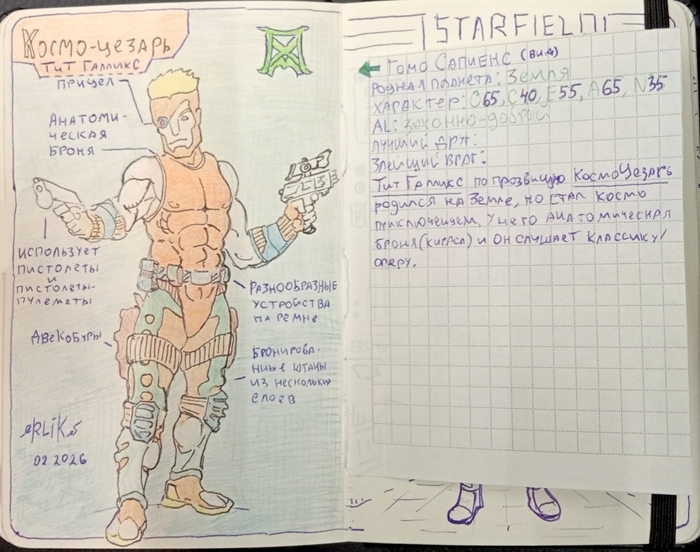 Космо-цезарь
Тит Галликс
прицел
Анатоми-
ческая
броня
использует
пистолеты
и
пистолеты-
пулеметы
две кобуры
ERLiK
02.2026
Разнообразные
устройства
на ремне
Бронирова-
нные штаны
из нескольких
слоев
STARFIELD
Гомо Сапиенс (вид)
родная планета: Земля
характер: O65, C40, E55, A65, N35
AL: законно-добрый
лучший друг:
Злейший враг:
Тит Галликс по прозвищу КосмоЦезарь
родился на Земле, но стал космо
приключенцем, у него анатомическая
броня(кираса) и он слушает классику/
оперу.